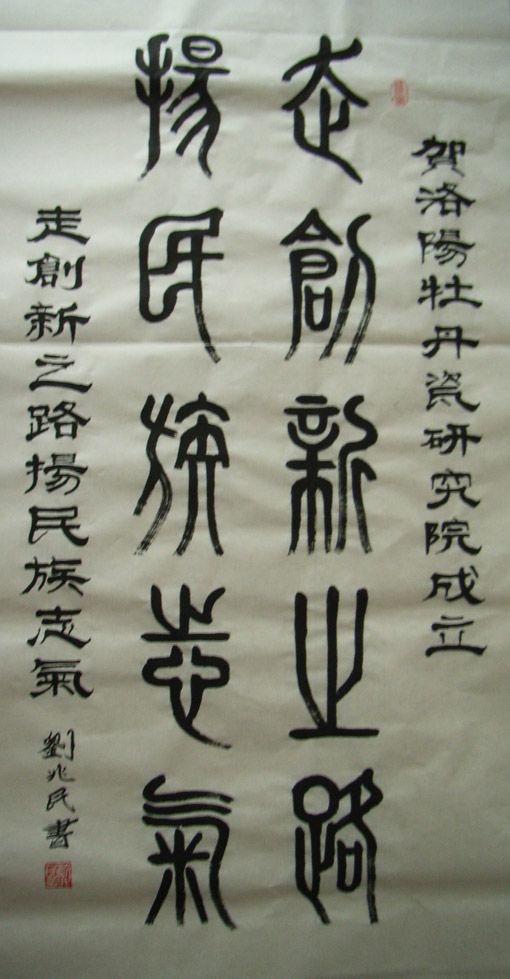 賀洛陽牡丹瓷研究院成立
走創新之路
揚民族志氣
走創新之路揚民族志氣
劉兆民書